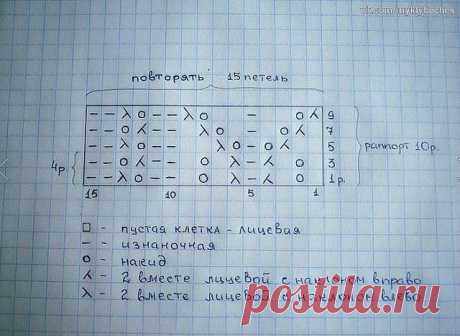 повторять 15 петель
– – λ O – – λ O – O ⅄ 9
– – O ⅄ – – λ O – O ⅄ 7
– – λ O – – λ O – O ⅄ 5
раппорт 10р.
4р.
– – O ⅄ – – O λ – ⅄ O 3
– – λ O – – O λ – ⅄ O 1р.
15 10 5 1
□ - пустая клетка - лицевая
– - изнаночная
O - накид
⅄ - 2 вместе лицевой с наклоном вправо
λ - 2 вместе лицевой с наклоном влево
postila.ru